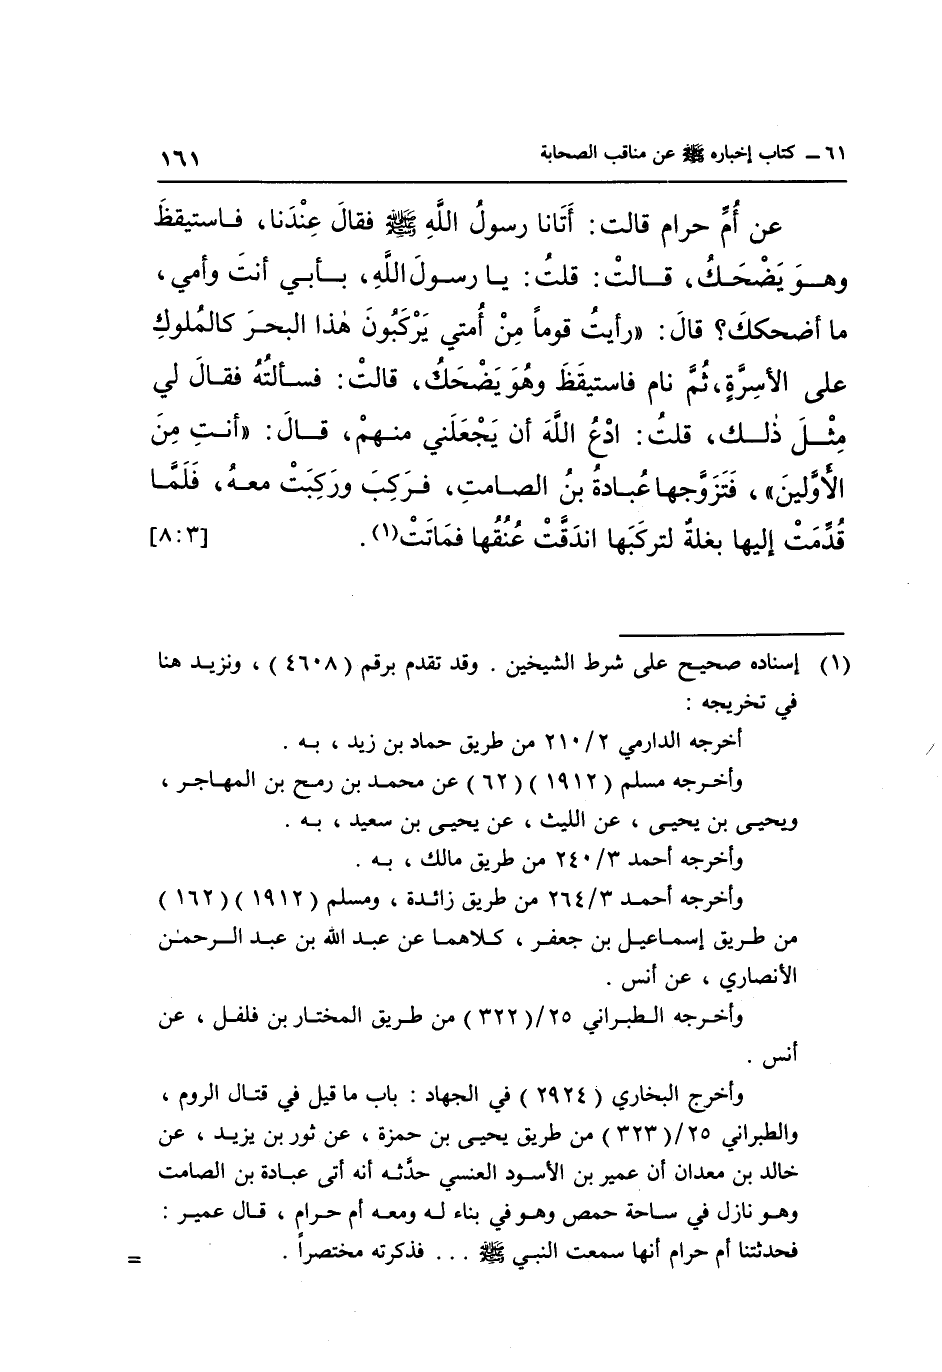 ٦١ ـ كتاب إخباره ﷺ عن مناقب الصحابة ١٦١
عن أُمِّ حرام قالت: أَتَانا رسولُ اللَّهِ ﷺ فقالَ عِنْدَنا، فـاستيقظَ
وهـو يَضْحَـكُ، قـالتْ: قلتُ: يـا رسـولَ اللَّهِ، بـأبي أنتَ وأمي،
ما أضحككَ؟ قالَ: «رأيتُ قوماً مِنْ أُمتي يَرْكَبُونَ هٰذا البحرَ كالمُلوكِ
على الأسِرَّةِ، ثُمَّ نام فاستيقَظَ وهُوَ يَضْحَكُ، قالتْ: فسألتُهُ فقالَ لي
مِثْلَ ذٰلك، قلتُ: ادْعُ اللَّهَ أن يَجْعَلَني منهمْ، قـالَ: «أنتِ مِنَ
الأَوَّلينَ»، فَتَزَوَّجها عُبادةُ بنُ الصامتِ، فـرَكِبَ ورَكِبَتْ معهُ، فَلَمَّا
قُدِّمَتْ إليها بغلةٌ لتركَبَها اندَقَّتْ عُنُقُها فمَاتَتْ(١). [٨:٣]
(١) إسناده صحيح على شرط الشيخين . وقد تقدم برقم (٤٦٠٨) ، ونزيـد هنا
في تخريجه :
أخرجه الدارمي ٢١٠/٢ من طريق حماد بن زيد ، بـه .
وأخـرجه مسلم (١٩١٢)(٦٢) عن محمـد بن رمـح بن المهاجـر ،
ويحيـى بن يحيـى ، عن الليث ، عن يحيـى بن سعيد ، بـه .
وأخرجه أحمد ٢٤٠/٣ من طريق مالك ، بـه .
وأخرجه أحمـد ٢٦٤/٣ من طريق زائـدة ، ومسلم (١٩١٢)(١٦٢)
من طـريق إسمـاعيـل بن جعفـر ، كـلاهمـا عن عبـد الله بن عبـد الـرحمـٰن
الأنصاري ، عن أنس .
وأخـرجه الـطبـراني ٢٥/(٣٢٢) من طـريق المختـار بن فلفـل ، عن
أنس .
وأخرج البخاري (٢٩٢٤) في الجهاد : باب ما قيل في قتـال الروم ،
والطبراني ٢٥/(٣٢٣) من طريق يحيـى بن حمزة ، عن ثور بن يزيـد ، عن
خالد بن معدان أن عمير بن الأسـود العنسي حدَّثـه أنه أتى عبـادة بن الصامت
وهـو نازل في سـاحة حمص وهـو في بناء لـه ومعـه أم حـرام ، قـال عميـر :
فحدثتنا أم حرام أنها سمعت النبـي ﷺ ... فذكرته مختصراً . =